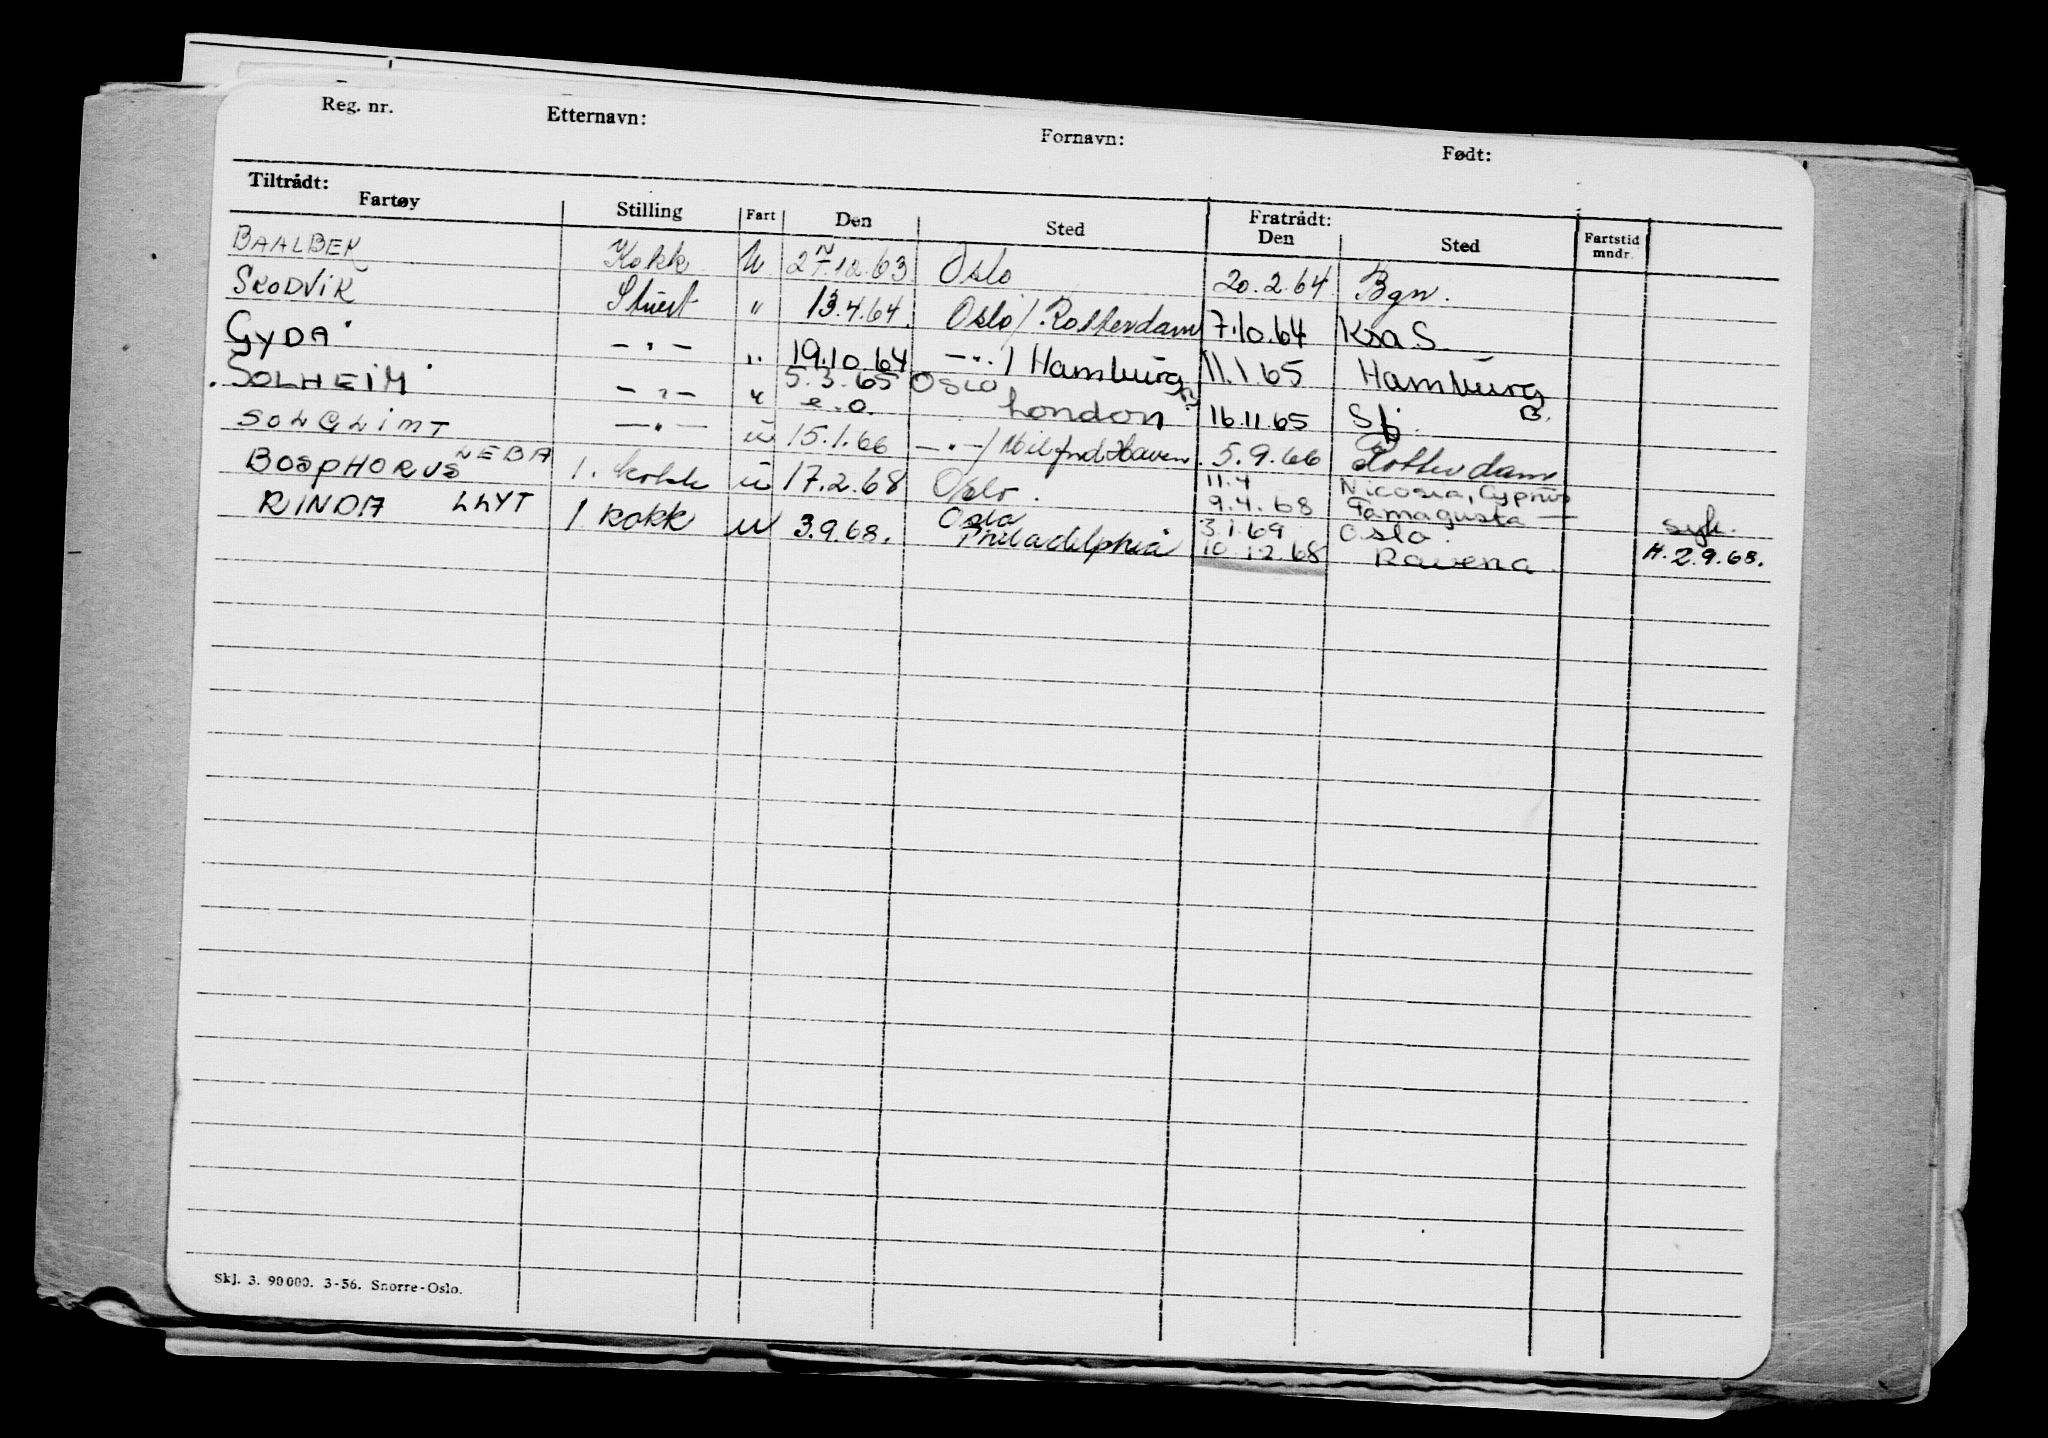 Reg. nr. Etternavn: Fornavn: Født:
Tiltrådt: Fratrådt:
Fartøy Stilling Fart Den Sted Den Sted Fartstid mndr.
BAALBEK Kokk U 27.12.63 Oslo 20.2.64 Bgn.
SKODVIK Stuert " 13.4.64. Oslo/Rotterdam 7.10.64 Krs.S.
GYDA - " - " 19.10.64 -"-/ Hamburg 11.1.65 Hamburg
SOLHEIM - " - " 5.3.65 e.o. Oslo London 16.11.65 Sfj. B.
SOLGLIMT - " - u 15.1.66 -"-/Milford Haven. 5.9.66 Rotterdam
BOSPHORUS LEBA 1. kokk u 17.2.68 Oslo. 11.4 Nicosia, Cyprus
9.4.68 Famagusta — syk.
RINDA LLYT 1 kokk u 3.9.68. Oslo 3.1.69 Oslo. H.2.9.68.
Philadelphia 10.12.68 Ravena
Skj. 3. 90 000. 3-56. Snorre-Oslo.